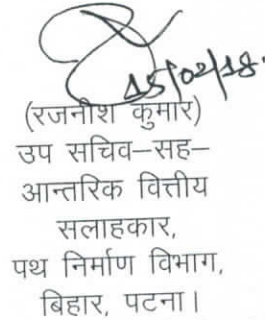 15/02/18.
(रजनीश कुमार)
उप सचिव–सह–
आन्तरिक वित्तीय
सलाहकार,
पथ निर्माण विभाग,
बिहार, पटना।